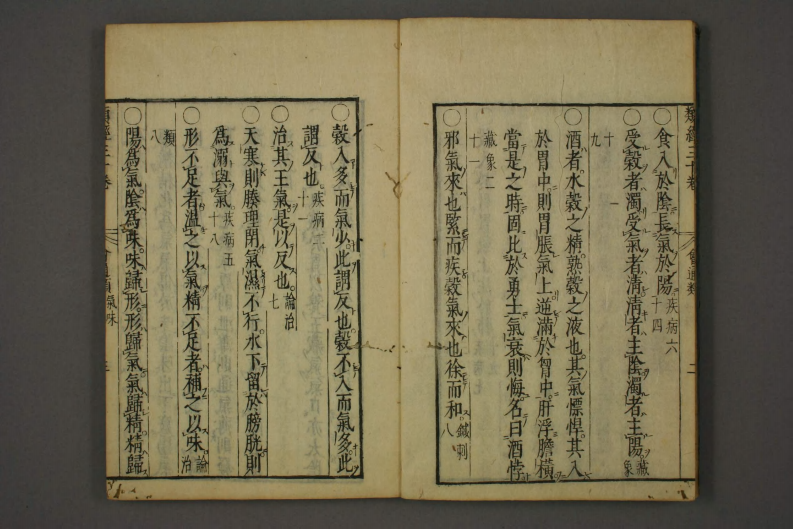 類經三十卷 會通類 二
○食入於陰長氣於陽疾病六十四
○受穀者濁受氣者清清者主陰濁者主陽藏象
十九 一
○酒者水穀之精熟穀之液也其氣慓悍其入
於胃中則胃脹氣上逆滿於胷中肝浮膽橫
當是之時固比於勇士氣衰則悔名曰酒悖
藏象二十一
○邪氣來也緊而疾穀氣來也徐而和鍼刺八
○穀入多而氣少此謂反也穀不入而氣多此
謂反也疾病二十一
○治其王氣是以反也論治七
○天寒則腠理閉氣濕不行水下留於膀胱則
為溺與氣疾病五十八
○形不足者溫之以氣精不足者補之以味論治
類八
○陽為氣陰為味味歸形形歸氣氣歸精精歸
類經三十卷 會通類氣味 三